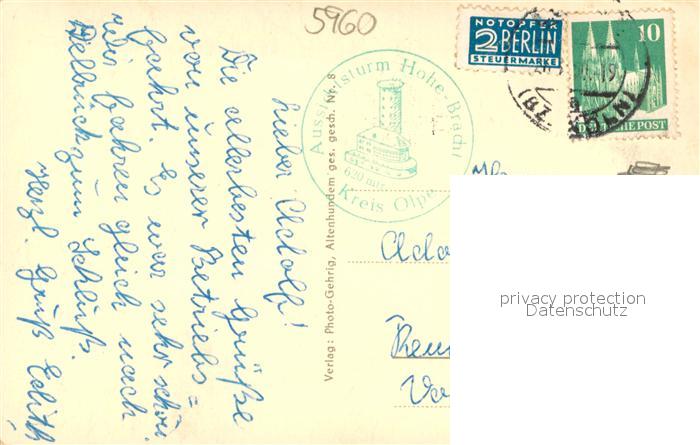 5960
NOTOPFER
2 BERLIN
STEUERMARKE
10
DEUTSCHE POST
(BZ. KÖLN)
Aussichtsturm Hohe-Bracht
620 m
Kreis Olpe
Lieber Adolf!
Die allerbesten Grüße
von unserer Betriebs=
fahrt. Es war sehr schön.
Wir fahren gleich nach
zum Schluß.
Herzl. Gruß Edith
Verlag: Photo-Gehrig, Altenhundem ges. gesch. Nr. 8
privacy protection
Datenschutz